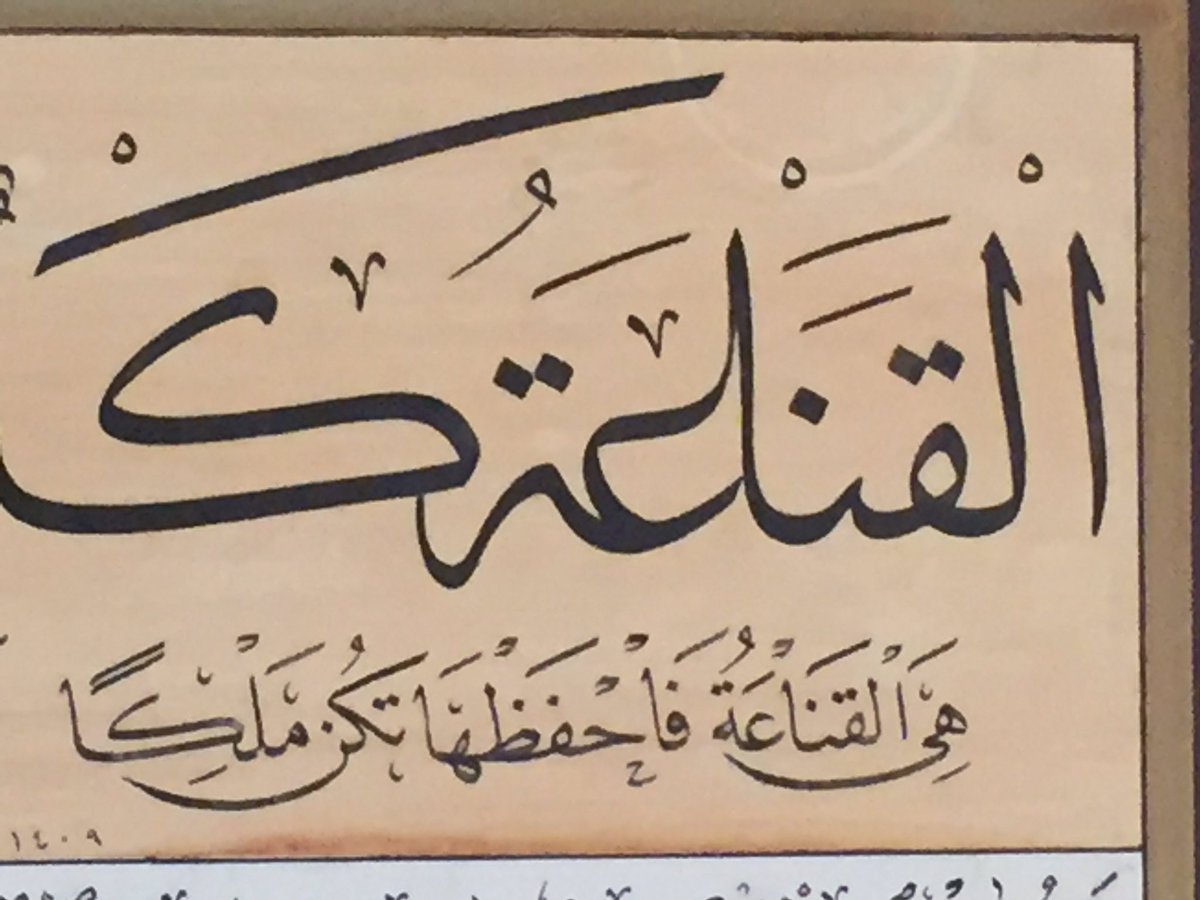 الْقَنَاعَةُ
هِيَ الْقَنَاعَةُ فَاحْفَظْهَا تَكُنْ مَلِكًا
١٤٠٩